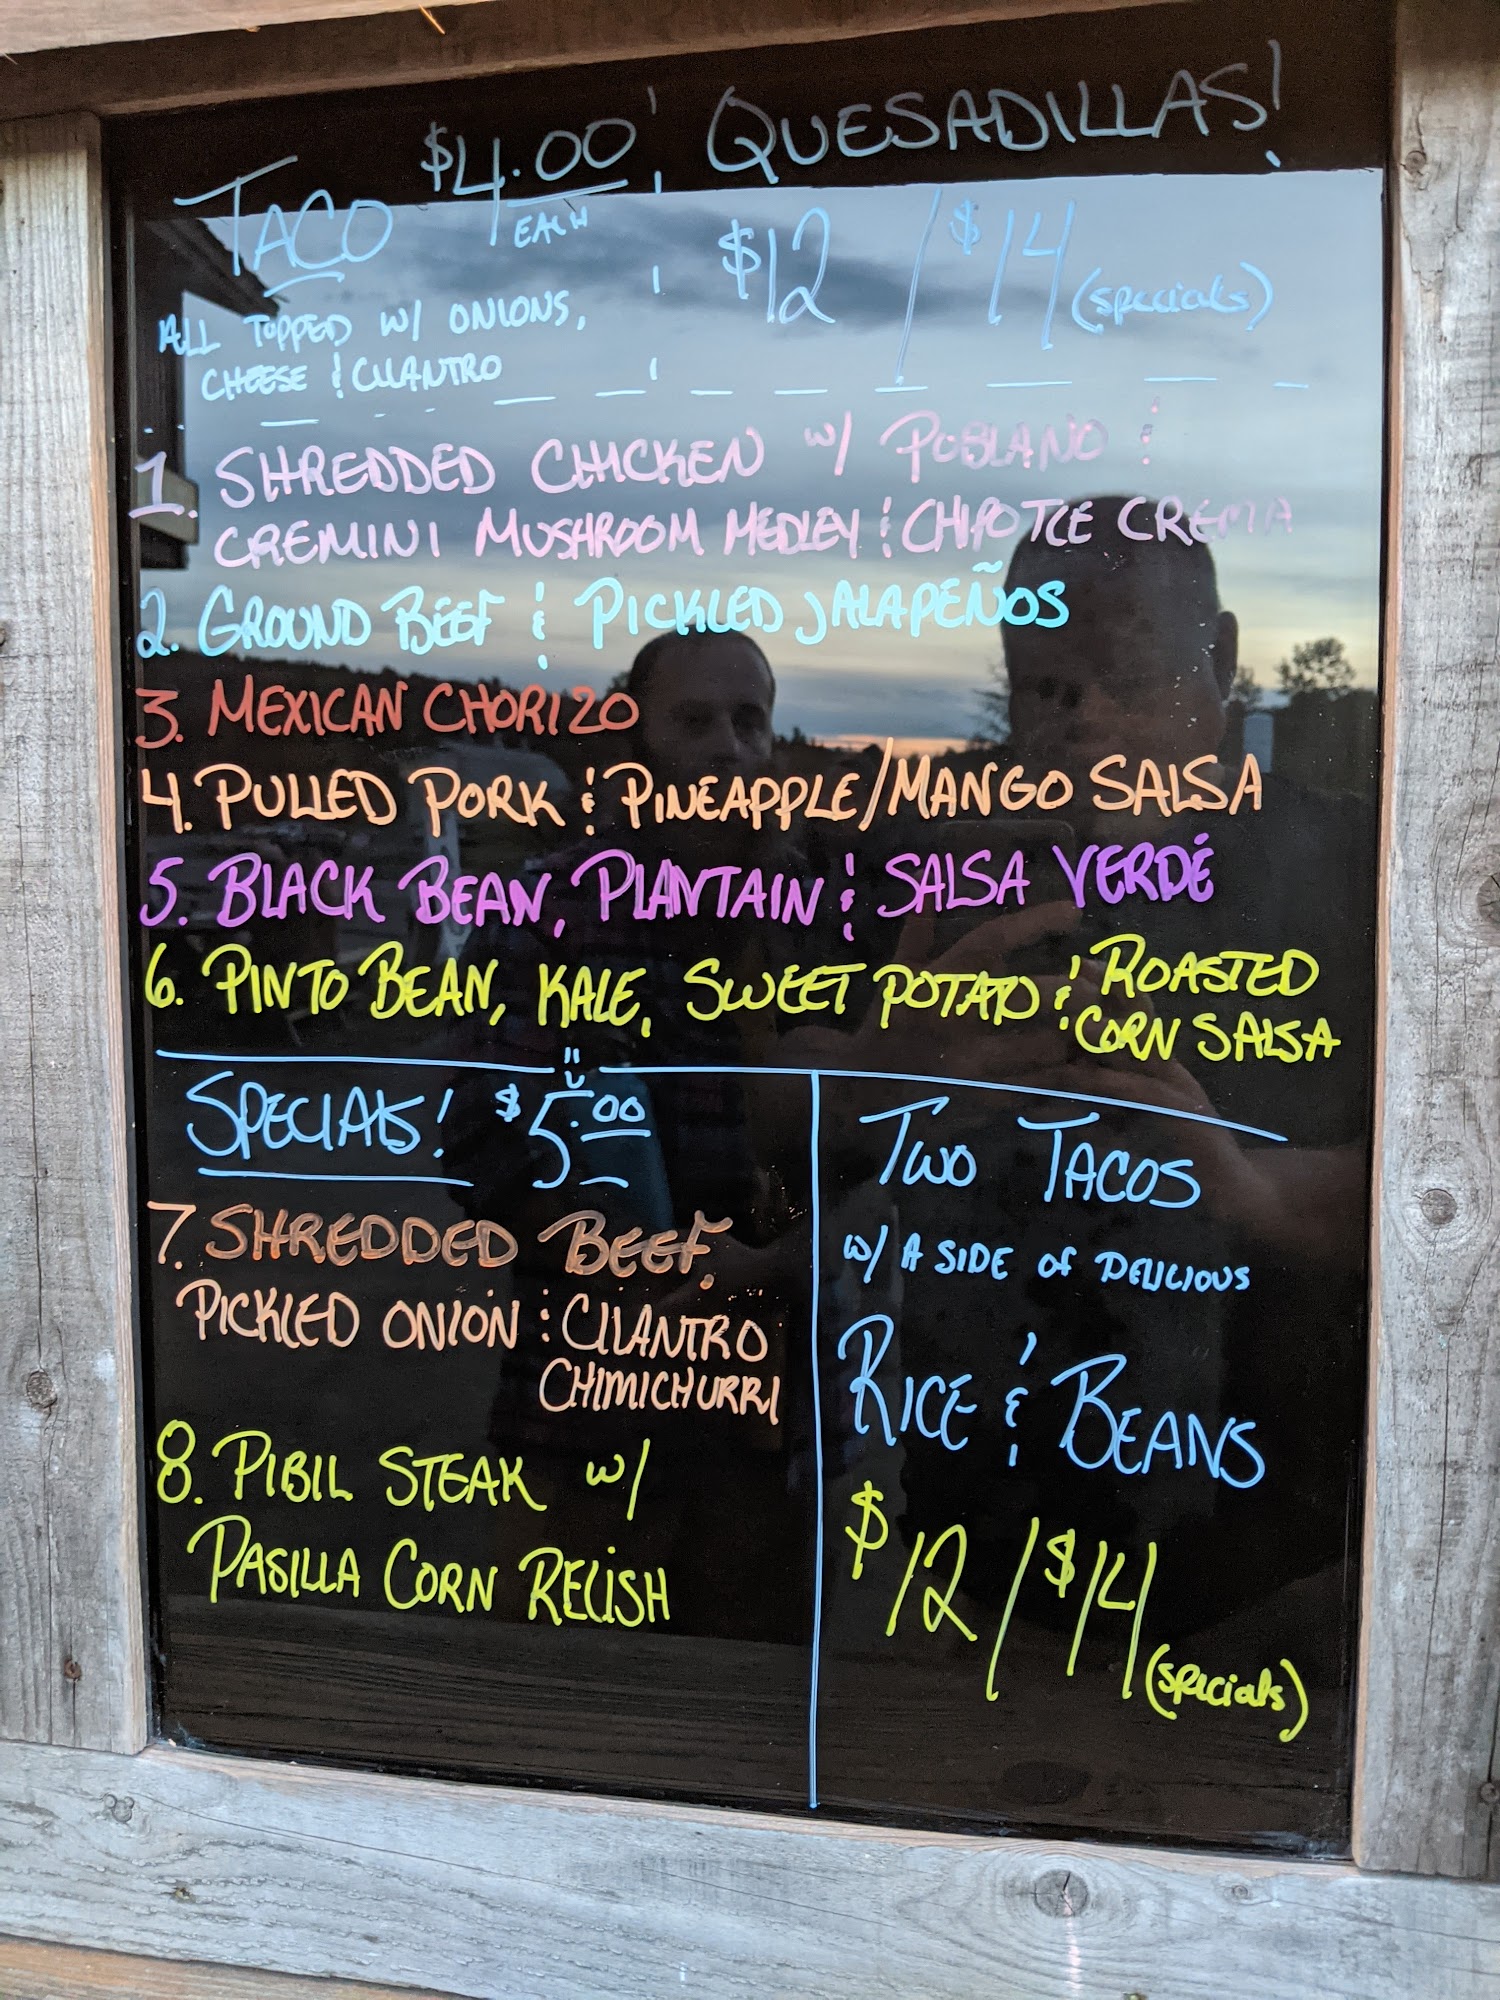 TACO $4.00 EACH
ALL TOPPED W/ ONIONS,
CHEESE & CILANTRO
QUESADILLAS!
$12 / $14 (specials)
1. SHREDDED CHICKEN W/ POBLANO &
CREMINI MUSHROOM MEDLEY & CHIPOTLE CREMA
2. GROUND BEEF & PICKLED JALAPEÑOS
3. MEXICAN CHORIZO
4. PULLED PORK & PINEAPPLE/MANGO SALSA
5. BLACK BEAN, PLANTAIN & SALSA VERDÉ
6. PINTO BEAN, KALE, SWEET POTATO & ROASTED
CORN SALSA
SPECIALS! $5.00
7. SHREDDED BEEF,
PICKLED ONION & CILANTRO
CHIMICHURRI
8. PIBIL STEAK W/
PASILLA CORN RELISH
TWO TACOS
W/ A SIDE OF DELICIOUS
RICE & BEANS
$12/$14
(specials)